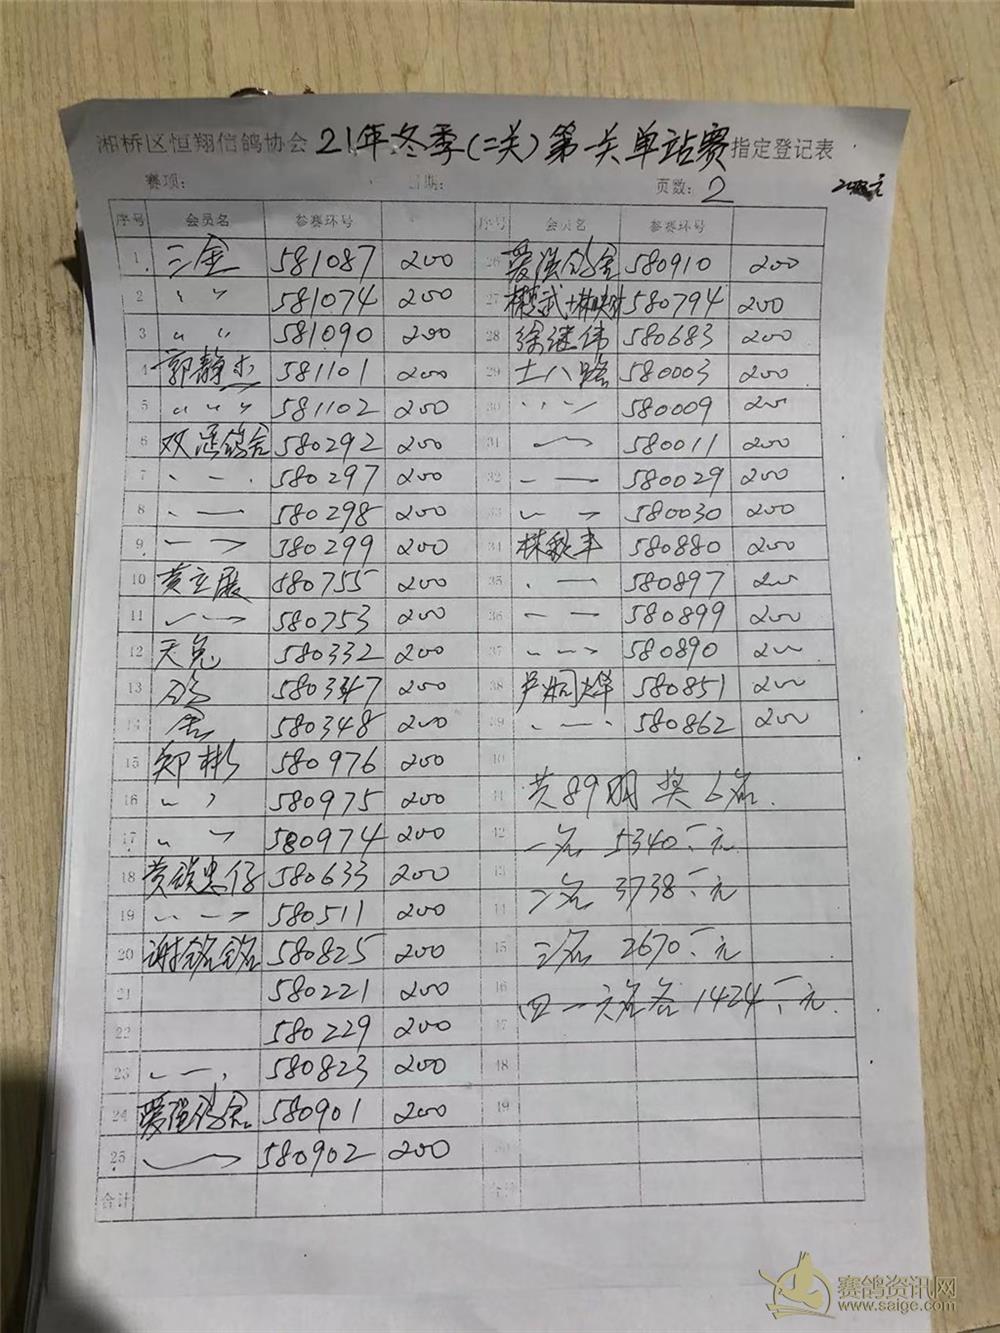 湘桥区恒翔信鸽协会 21年冬季(二关)第一关单站赛 指定登记表
赛项: 日期: 页数: 2
序号 会员名 参赛环号 序号 会员名 参赛环号
1 三金 581087 200 26 爱强鸽舍 580910 200
2 〃 〃 581074 200 27 580794 200
3 〃 〃 581090 200 28 徐继伟 580683 200
4 郭静 581101 200 29 土八路 580003 200
5 〃 〃 〃 581102 200 30 〃 〃 580009 200
6 双涵鸽舍 580292 200 31 580011 200
7 580297 200 32 580029 200
8 580298 200 33 580030 200
9 580299 200 34 林秋丰 580880 200
10 黄立展 580755 200 35 580897 200
11 580753 200 36 580899 200
12 天兔 580332 200 37 580890 200
13 鸽 580347 200 38 580851 200
14 舍 580348 200 39 580862 200
15 郑彬 580976 200 40
16 〃 〃 580975 200 41 共89羽 奖6名
17 〃 〃 580974 200 42 一名 5340元
18 580633 200 43 二名 3738元
19 580511 200 44
20 谢铭铭 580825 200 45 三名 2670元
21 580221 200 46 四一六名各1424元
22 580229 200 47
23 580823 200 48
24 爱强鸽舍 580901 200 49
25 580902 200 50
合计 合计
赛鸽资讯网
www.saige.com